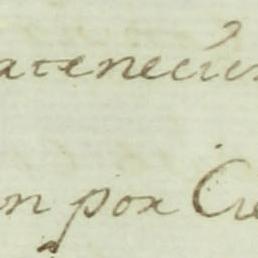 atenecien
n por Cu